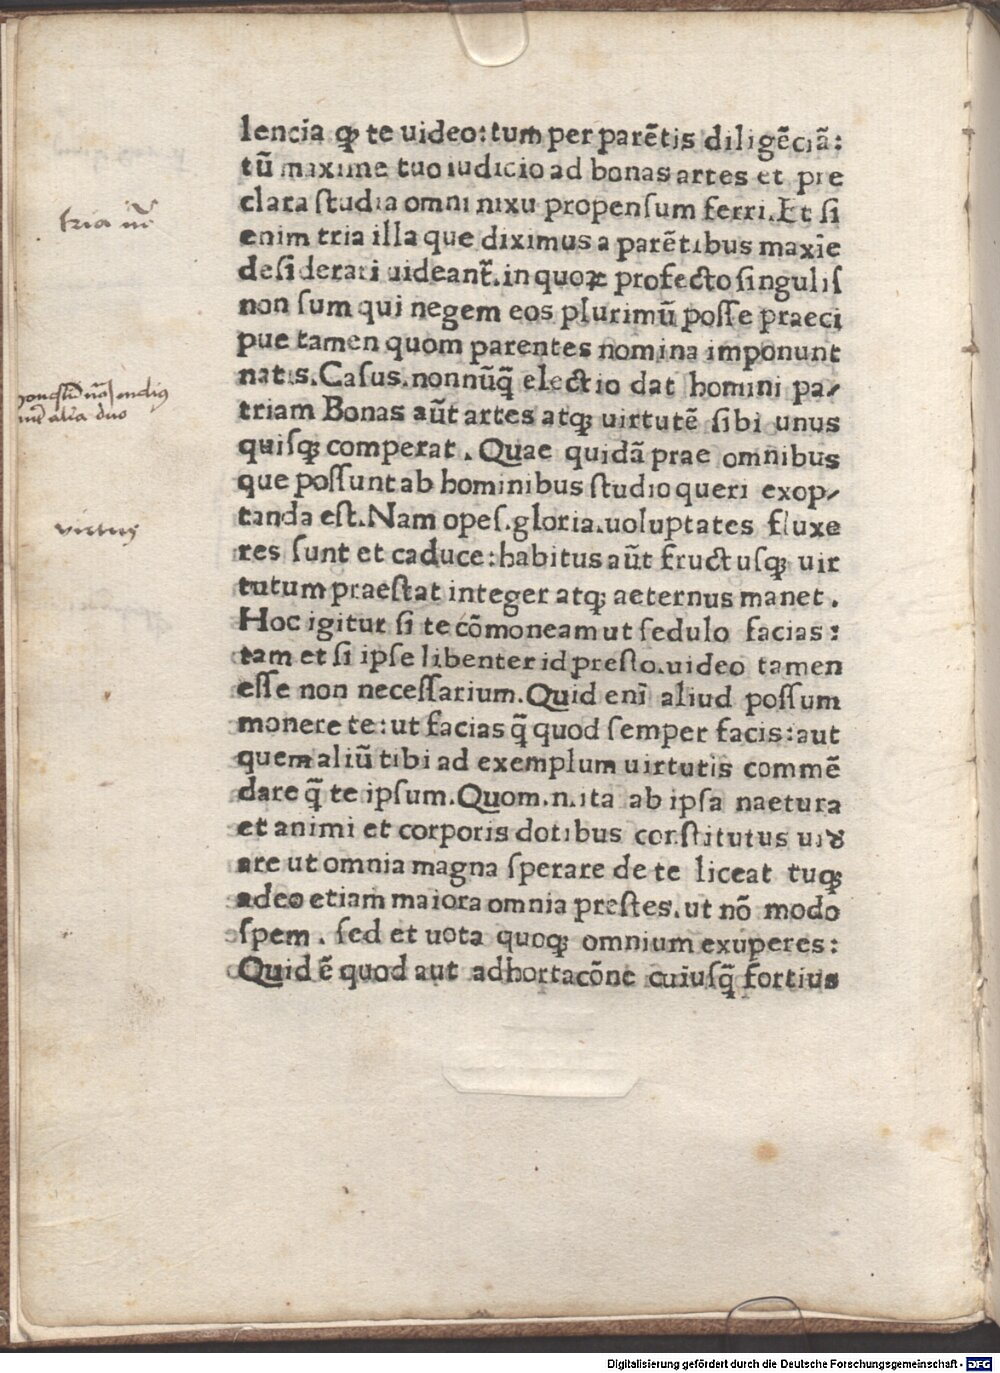 lencia qꝫ te uideo: tum per parẽtis diligẽciã:
tũ maxime tuo iudicio ad bonas artes et pre
clara ſtudia omni nixu propenſum ferri. Et ſi
enim tria illa que diximus a parẽtibus maxĩe
deſiderari uideant᷑. in quoꝝ profecto ſingulis
non ſum qui negem eos plurimũ poſſe praeci
pue tamen quom parentes nomina imponunt
natis. Caſus. nonnũq̃ electio dat homini pa⸗
triam Bonas aũt artes atqꝫ uirtutẽ ſibi unus
quiſqꝫ comperat. Quae quidã prae omnibus
que poſſunt ab hominibus ſtudio queri exop⸗
tanda eſt. Nam opeſ. gloria. uoluptates fluxe
res ſunt et caduce: habitus aũt fructuſqꝫ uir
tutum praeſtat integer atqꝫ aeternus manet.
Hoc igitur ſi te cõmoneam ut ſedulo facias:
tam et ſi ipſe libenter id preſto. uideo tamen
eſſe non neceſſarium. Quid enĩ aliud poſſum
monere te: ut facias q̃ quod ſemper facis: aut
quem aliũ tibi ad exemplum uirtutis commẽ
dare q̃ te ipſum. Quom. n. ita ab ipſa naetura
et animi et corporis dotibus conſtitutus uiꝺ
are ut omnia magna ſperare de te liceat tuqꝫ
adeo etiam maiora omnia preſtes. ut nõ modo
ſpem. ſed et uota quoqꝫ omnium exuperes:
Quid ẽ quod aut adhortacõne cuiuſq̃ fortius
tria
alia duo
virtus
Digitalisierung gefördert durch die Deutsche Forschungsgemeinschaft - DFG